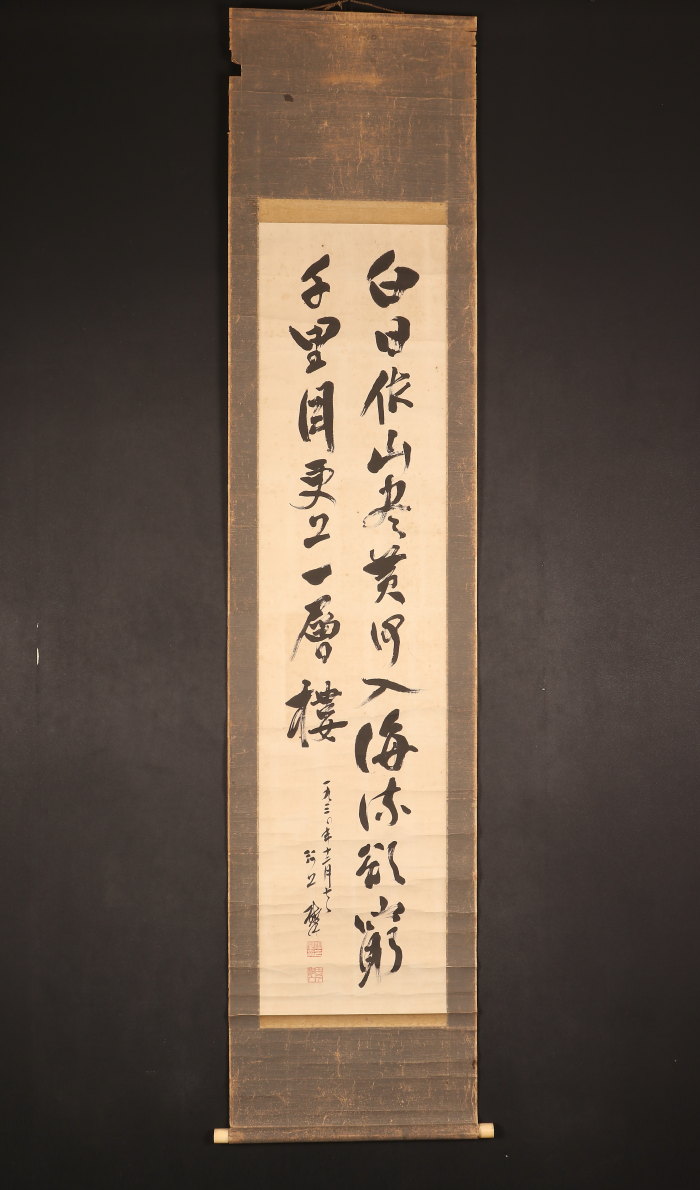 白日依山尽黄河入海流欲窮
千里目更上一層樓
一九三〇年十二月